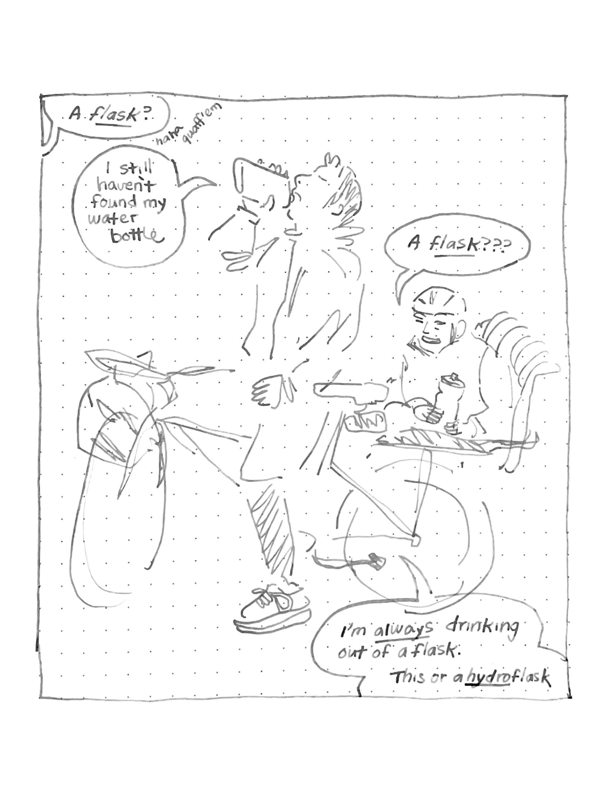 A flask?
'haha
quaff 'em
I still
haven't
found my
water
bottle
A flask???
I'm always drinking
out of a flask.
This or a hydroflask